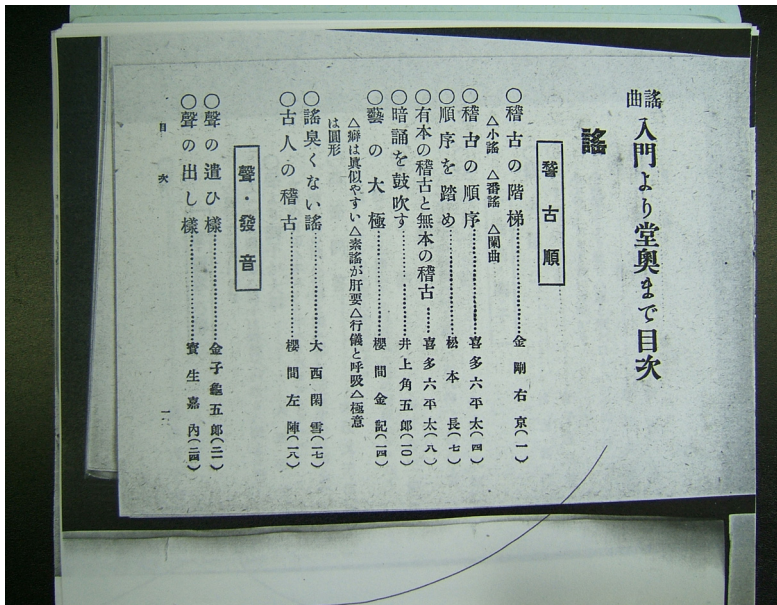 謠曲 入門より堂奧まで目次
謠
稽古順
○稽古の階梯………………金剛右京(一)
△小謠 △番謠 △闌曲
○稽古の順序………………喜多六平太(四)
○順序を踏め………………松本長(七)
○有本の稽古と無本の稽古……喜多六平太(八)
○暗誦を鼓吹す………………井上角五郎(一〇)
○藝の大極………………櫻間金記(一四)
△癖は眞似やすい△素謠が肝要△行儀と呼吸△極意
は圓形
○謠臭くない謠………………大西閑雪(一七)
○古人の稽古………………櫻間左陣(一八)
聲・發音
○聲の遣ひ樣………………金子龜五郎(二一)
○聲の出し樣………………寶生嘉內(二四)
目次